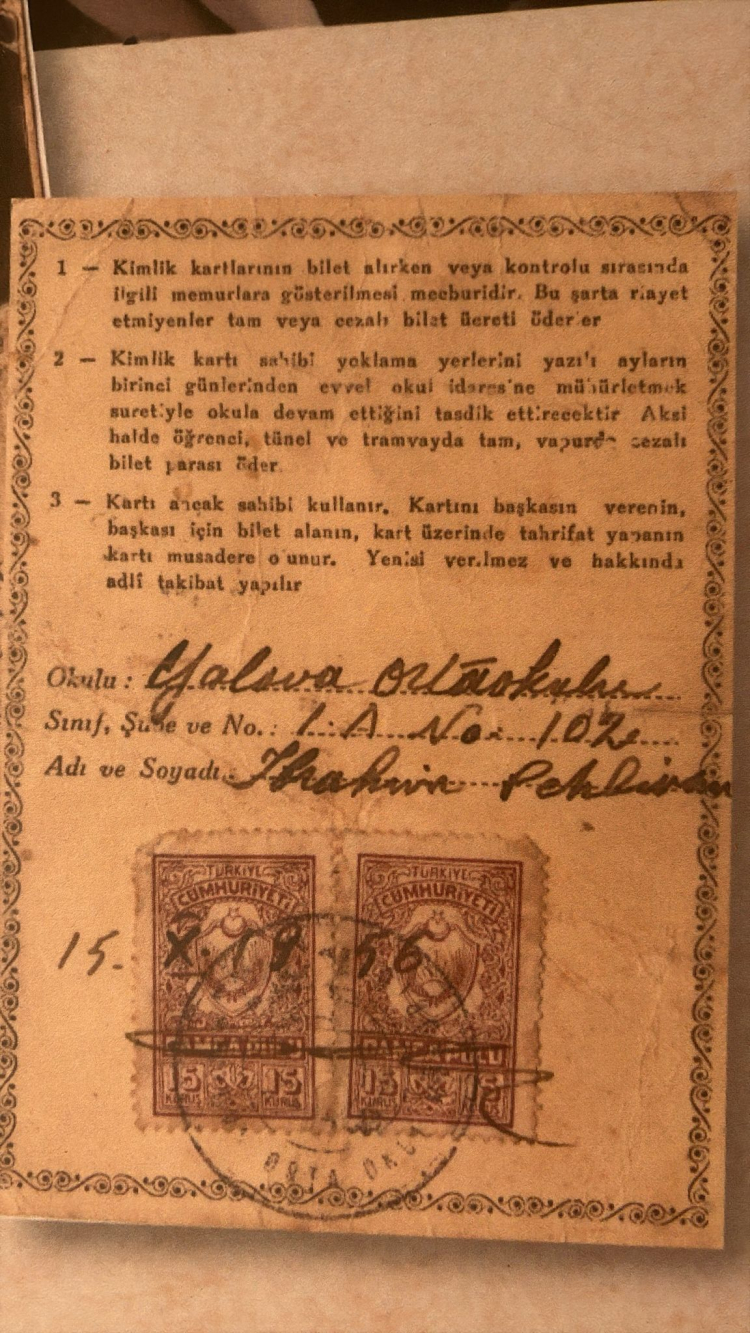 1 — Kimlik kartlarının bilet alırken veya kontrolu sırasında
ilgili memurlara gösterilmesi mecburidir. Bu şarta riayet
etmiyenler tam veya cezalı bilet ücreti öderler
2 — Kimlik kartı sahibi yoklama yerlerini yazılı ayların
birinci günlerinden evvel okul idaresine mühürletmek
suretiyle okula devam ettiğini tasdik ettirecektir Aksi
halde öğrenci, tünel ve tramvayda tam, vapurda cezalı
bilet parası öder.
3 — Kartı ancak sahibi kullanır. Kartını başkasın verenin,
başkası için bilet alanın, kart üzerinde tahrifat yapanın
kartı musadere olunur. Yenisi verilmez ve hakkında
adlî takibat yapılır
Okulu : Yalova Ortaokulu
Sınıf, Şube ve No. : 1. A No: 102
Adı ve Soyadı : İbrahim Pehlivan
TÜRKİYE TÜRKİYE
CÜMHURİYETİ CÜMHURİYETİ
15. X. 19 56
DAMGA PULU DAMGA PULU
15 15 15 15
KURUŞ KURUŞ KURUŞ
ORTA OKUL